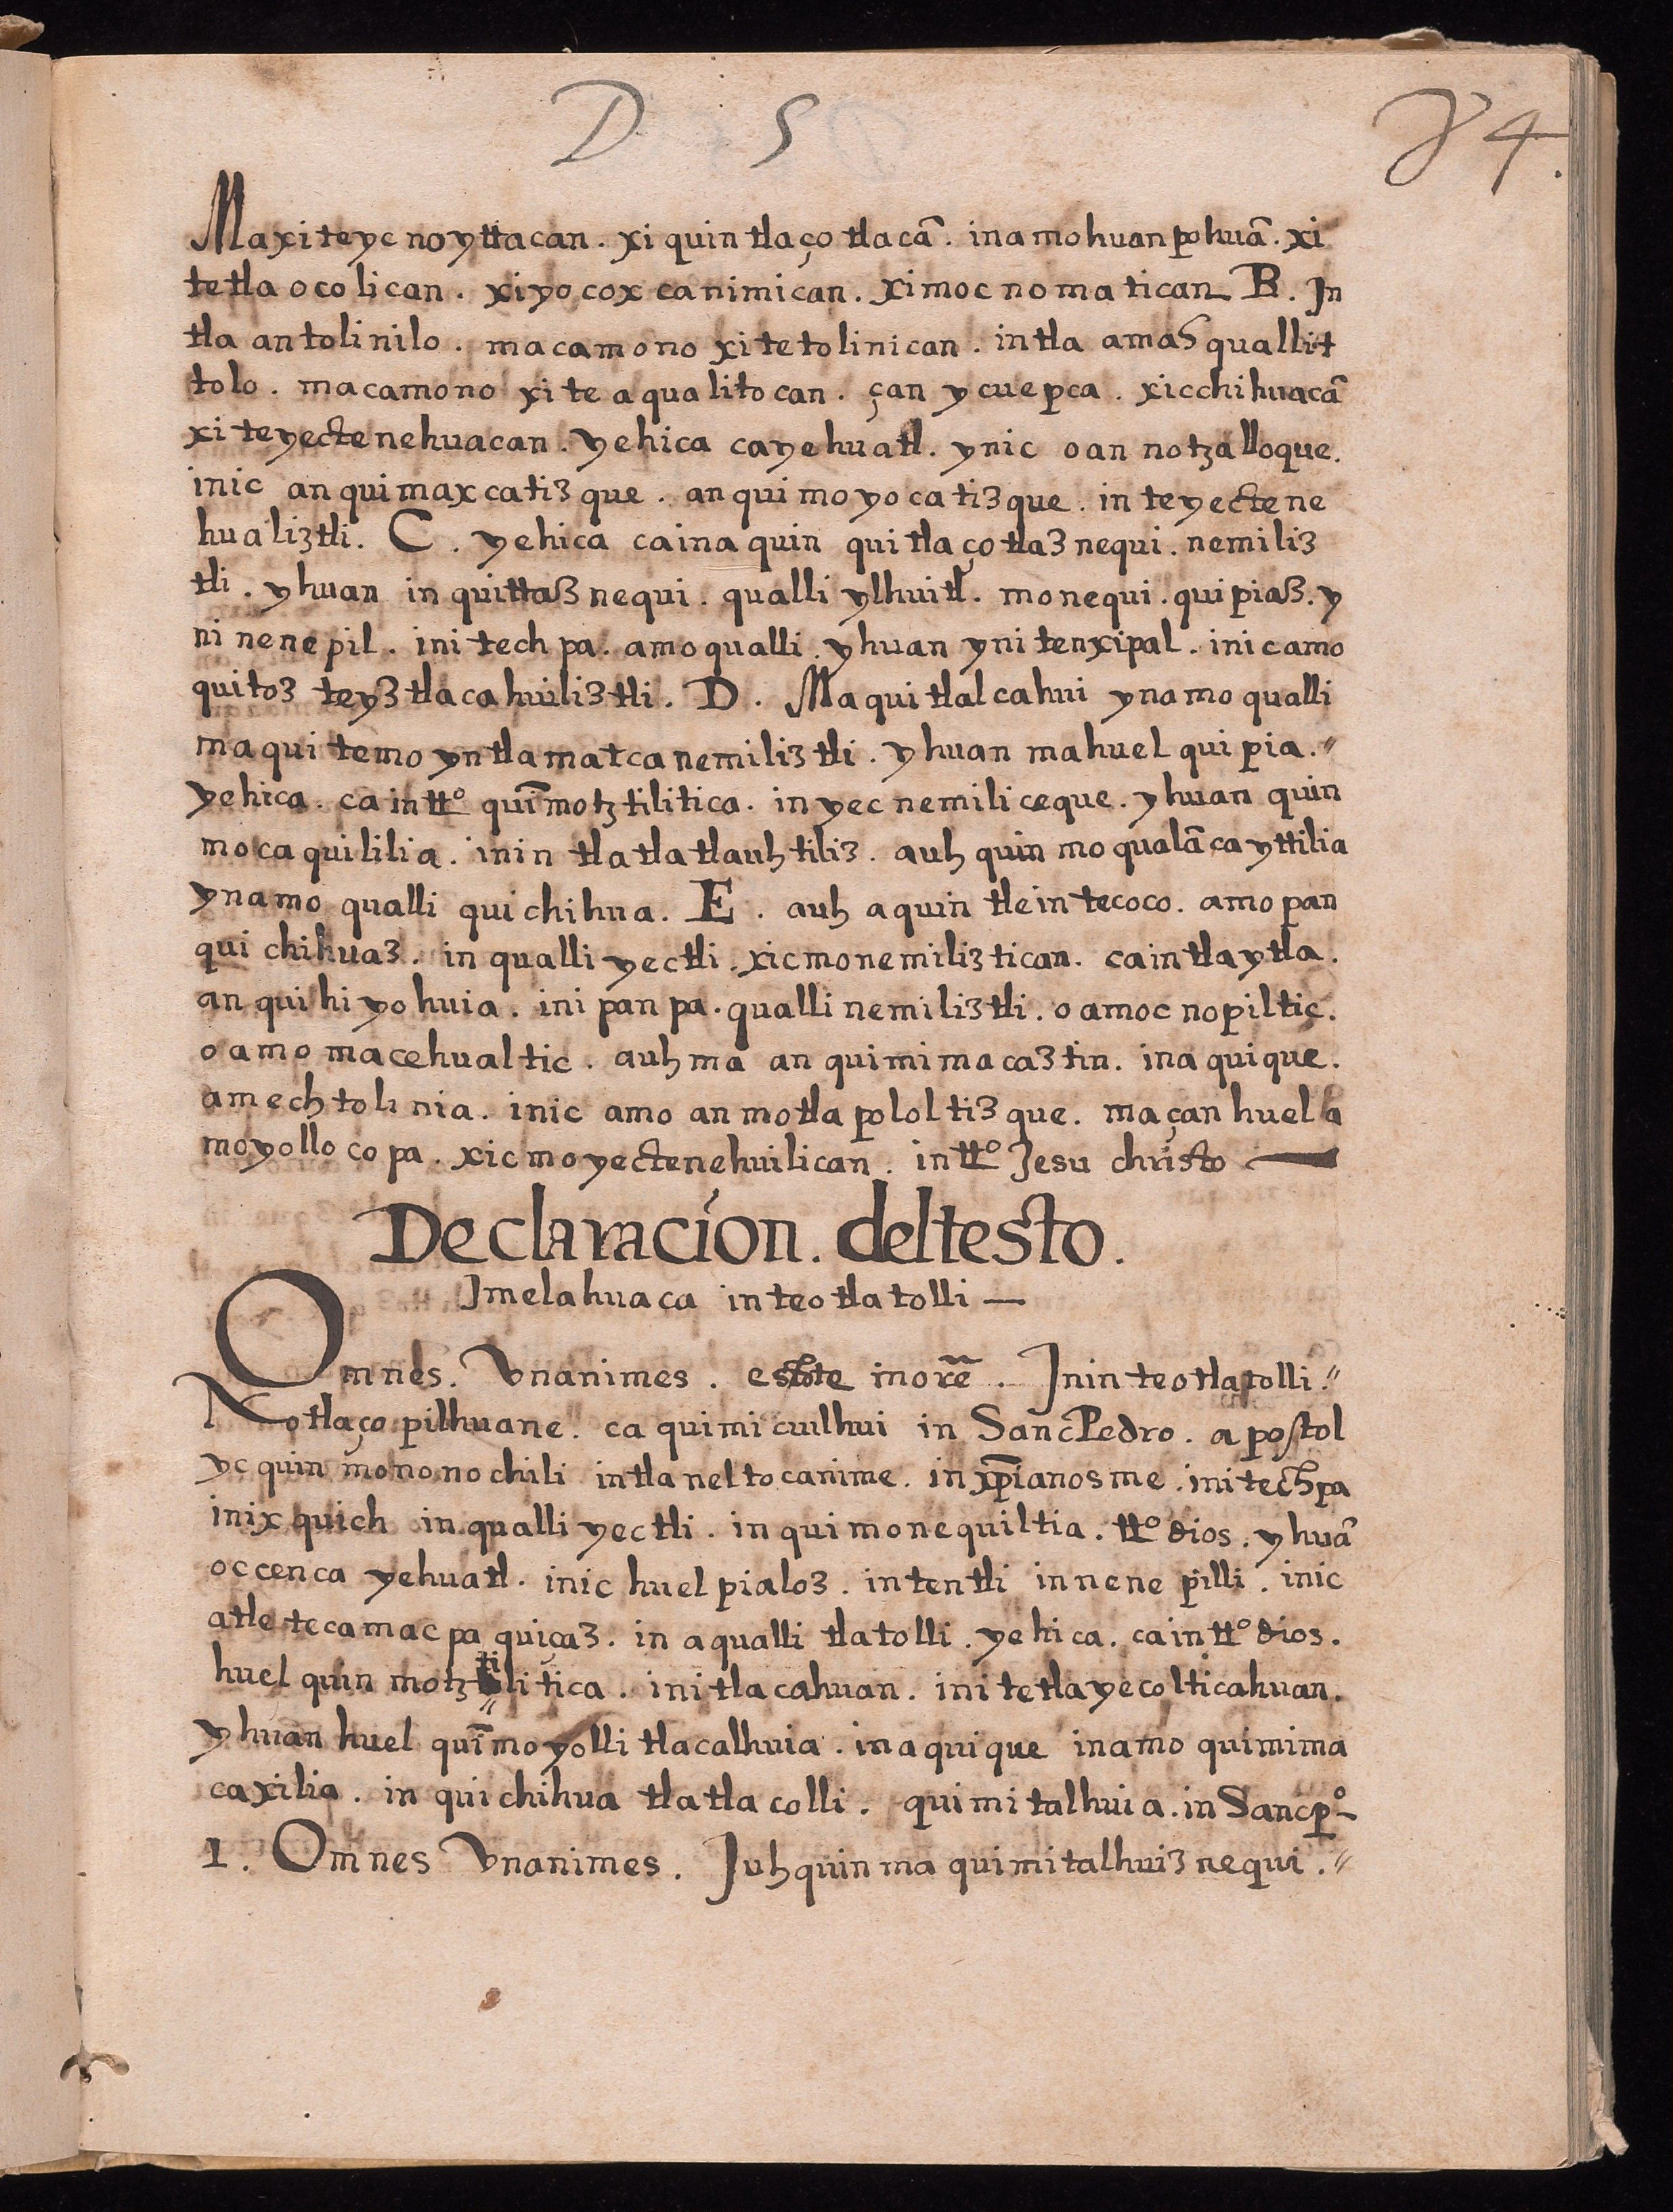 D 5 84.
Maxiteyc noyttacan. xi quin tlaço tlacã. inamohuanpohuã. xi
tetla o co lican. xiyo cox canimican. ximoc no ma tican B. In
tla antolinilo. macamono xi te tolinican. intla amas quallit
tolo. macamono xi te a qua lito can. çan y cuepca. xicchihuacã
xi teyectenehuacan. yehica cayehuatl. ynic oan notzalloque.
inic an qui max cati3 que. an qui mo yo ca ti3que. in teyectene
huali3tli. C. yehica ca ina quin qui tla ço tla3 nequi. nemili3
tli. yhuan in quitta3 nequi. qualli ylhuitl. monequi. qui pia3. y
ni nene pil. ini tech pa. amo qualli. yhuan yni tenxipal. inic amo
quito3 tey3 tlacahuili3tli. D. Maqui tlalcahui ynamo qualli
maqui temo yntlamatcanemili3tli. yhuan mahuel qui pia.〃
yehica. ca in tto quĩmotztilitica. in yec nemiliceque. yhuan quin
mo ca qui lilia. inin tla tla tlauhtili3. auh quin mo qualãca yttilia
ynamo qualli qui chihua. E. auh a quin tlein tecoco. amo pan
qui chihua3. in qualli yectli. xicmonemili3 tican. ca in tlaytla.
an qui hi yo huia. ini pan pa. qualli nemili3tli. o amoc nopiltic.
o amo macehualtic. auh ma an quimimaca3tin. ina quique.
amech toli nia. inic amo an motla polol ti3 que. maçan huel a
moyollo co pa. xicmoyectenehuilican. in tto Jesu christo —
Declaracion. deltesto.
Imelahuaca in teotlatolli —
Omnes. Vnanimes. estote inorẽ. Inin teotlatolli.〃
Notlaço pilhuane. ca quimi cuilhui in SancPedro. apostol
yc quin mononochili intlaneltocanime. in xp̃ianosme. initechpa
inix quich in qualli yectli. in quimonequiltia. tto dios. yhuã
occenca yehuatl. inic huel pialo3. in tentli in nene pilli. inic
atle tecamac pa quiça3. in aqualli tlatolli. yehica. ca in tto dios.
huel quin motztilitica. initlacahuan. initetlayecolticahuan.
yhuan huel quĩmoyolli tlacalhuia. inaquique inamo quimima
caxilia. in quichihua tlatlacolli. quimitalhuia. in Sancpo
1. Omnes Vnanimes. Iuhquin ma quimitalhui3nequi.〃